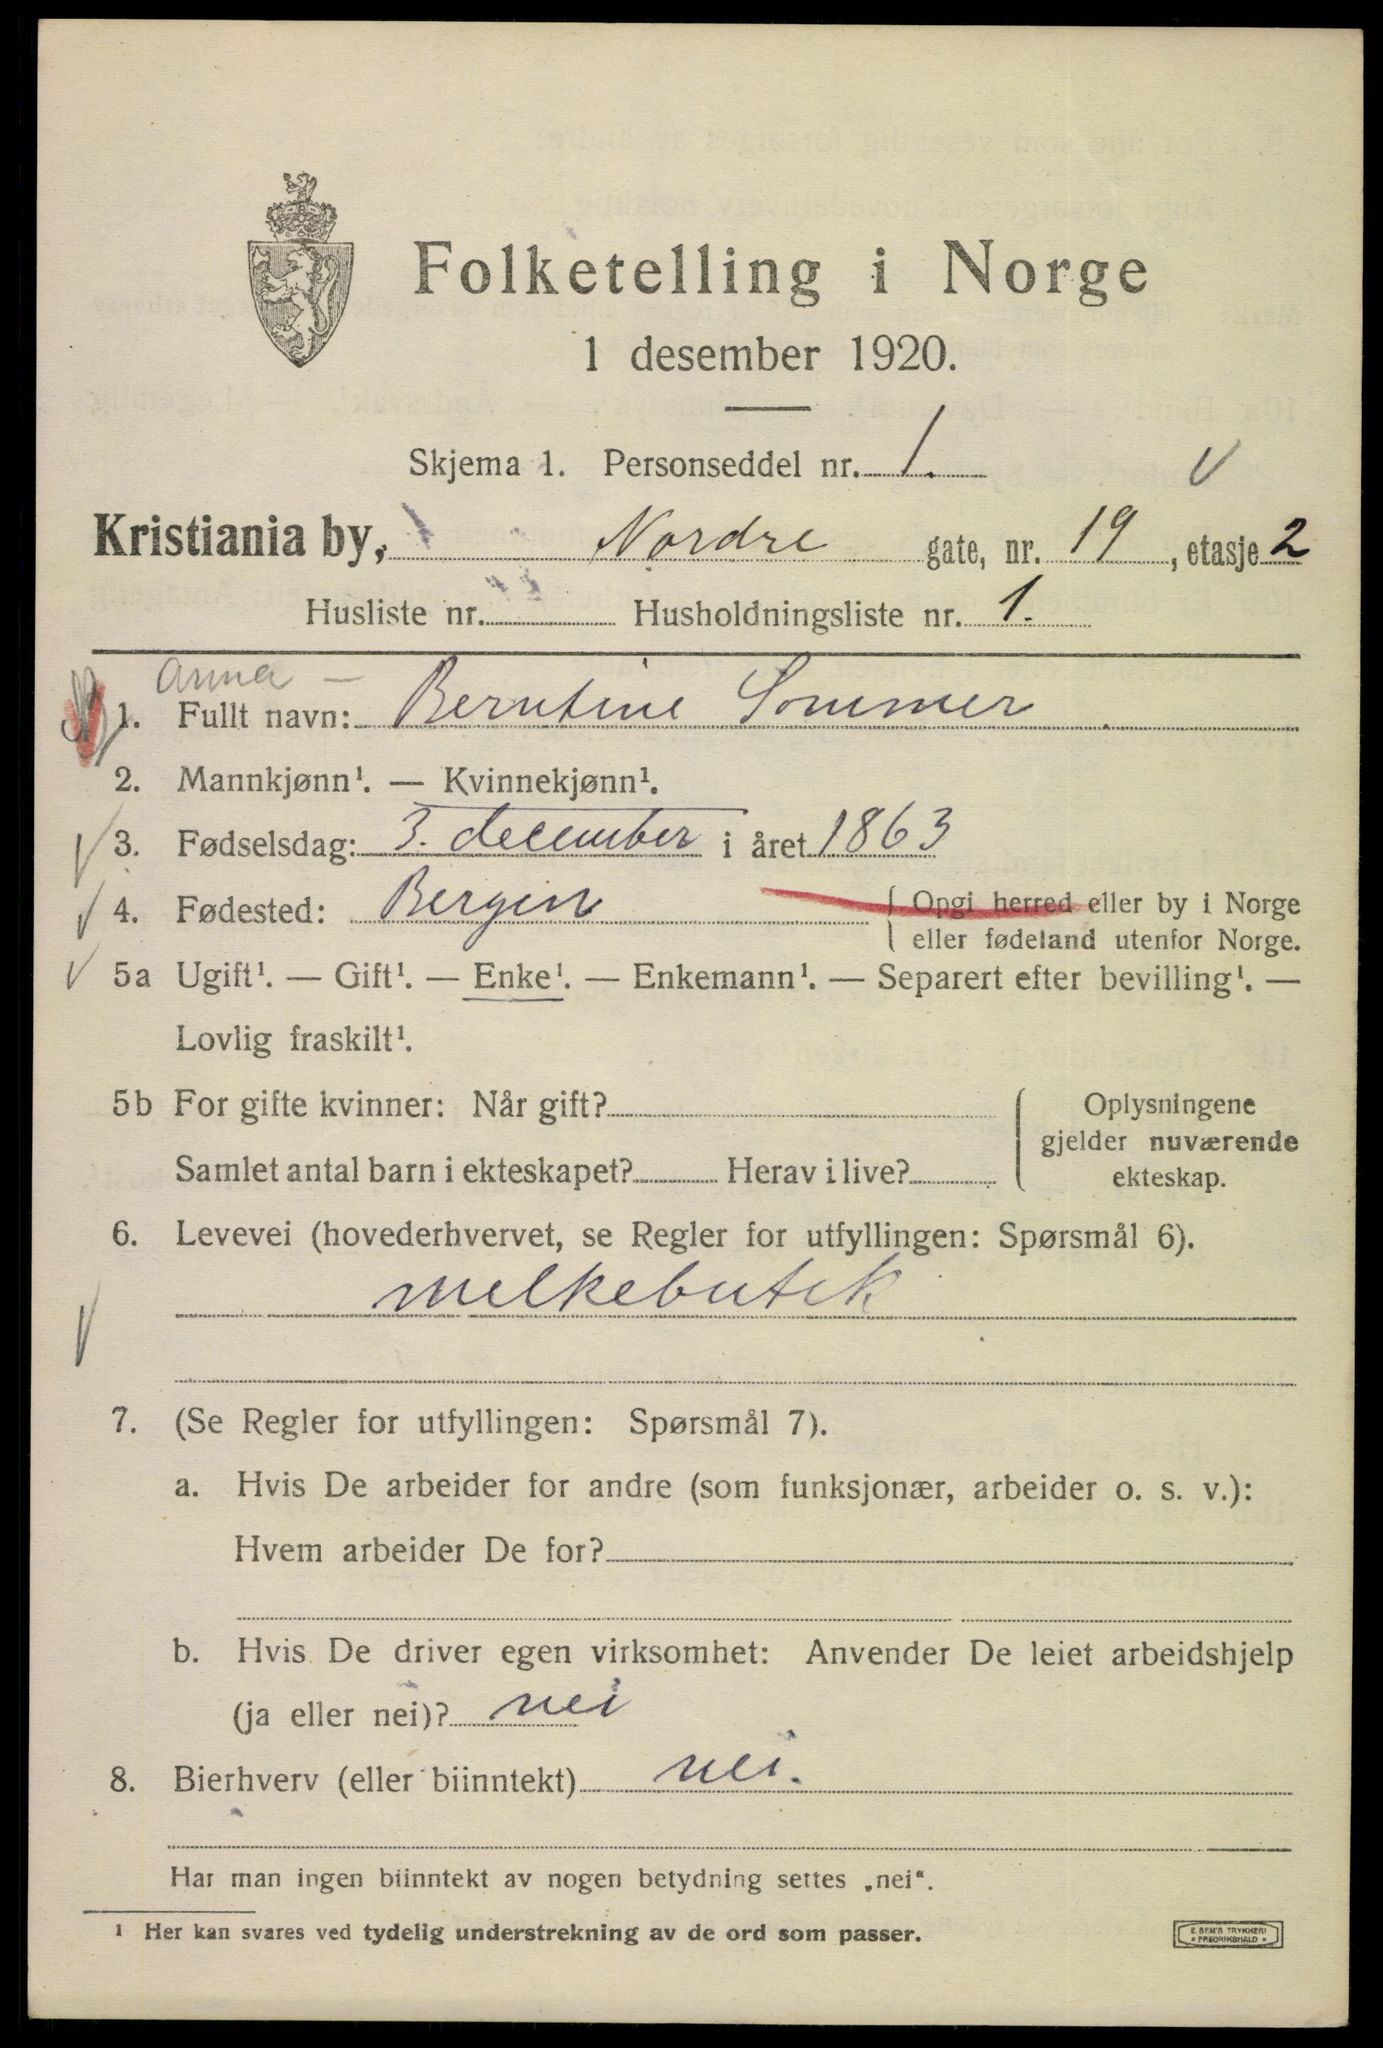 Folketelling i Norge
1 desember 1920.
Skjema 1. Personseddel nr. 1.
Kristiania by, Nordre gate, nr. 19, etasje 2
Husliste nr. Husholdningsliste nr. 1.
Anna —
1. Fullt navn: Berntine Sommer
2. Mannkjønn¹. — Kvinnekjønn¹.
3. Fødselsdag: 3. december i året 1863
4. Fødested: Bergen { Opgi herred eller by i Norge
eller fødeland utenfor Norge.
5a Ugift¹. — Gift¹. — Enke¹. — Enkemann¹. — Separert efter bevilling¹. —
Lovlig fraskilt¹.
5b For gifte kvinner: Når gift? Oplysningene
gjelder nuværende
Samlet antal barn i ekteskapet? Herav i live? ekteskap.
6. Levevei (hovederhvervet, se Regler for utfyllingen: Spørsmål 6).
melkebutik
7. (Se Regler for utfyllingen: Spørsmål 7).
a. Hvis De arbeider for andre (som funksjonær, arbeider o. s. v.):
Hvem arbeider De for?
b. Hvis De driver egen virksomhet: Anvender De leiet arbeidshjelp
(ja eller nei)? nei
8. Bierhverv (eller biinntekt) nei.
Har man ingen biinntekt av nogen betydning settes „nei“.
¹ Her kan svares ved tydelig understrekning av de ord som passer.
E. SEM'S TRYKKERI
FREDRIKSHALD